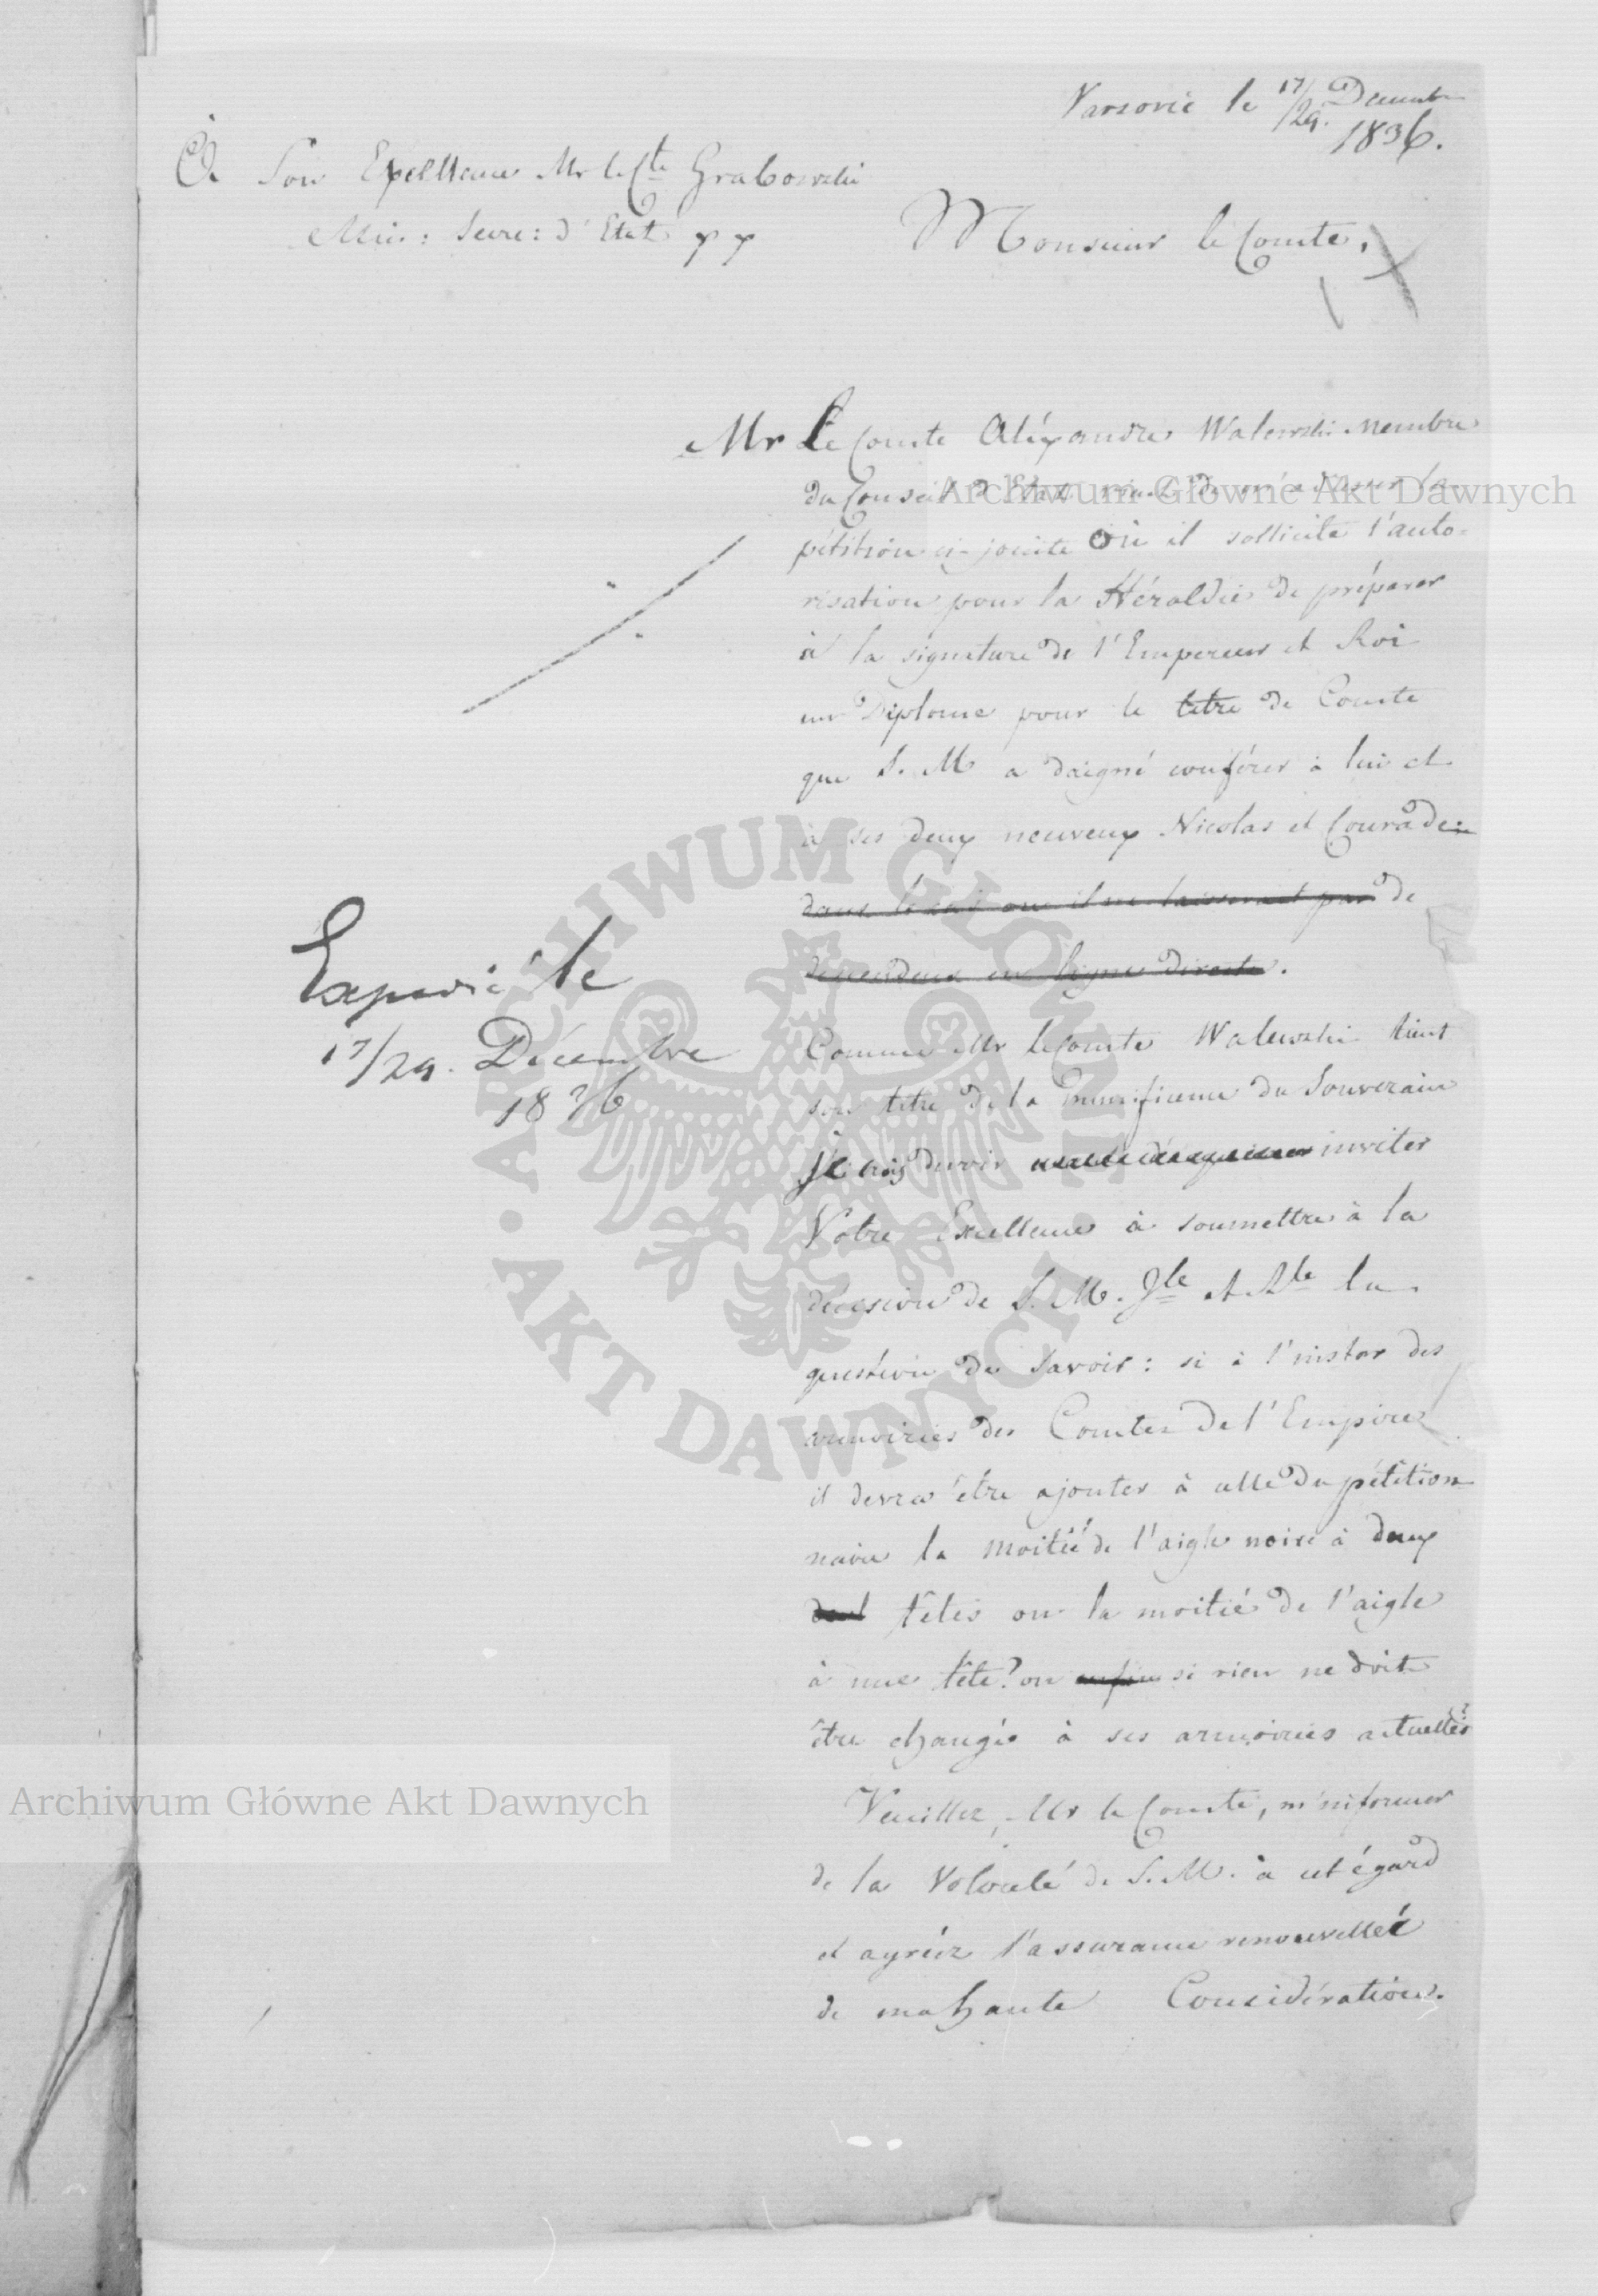 Varsovie le 17/29. Decembr
1836.
À Son Exellence Mr le Cte Grabowski
Min: Secre: d'Etat pp
Monsieur le Comte,
Mr Le Comte Aléxandre Walewski Membre
du Conseil d'Etat vient de m'adresser la
pétition ci-jointe où il sollicite l'auto-
risation pour la Héraldie de préparer
à la signature de l'Empereur et Roi
un Diplome pour le titre de Comte
que S. M a daigné conférer à lui et
à ses deux neuveux Nicolas et Conrade
dans le cas ou il ne laisserait pas de
descendans en ligne directe.
Expedié le
17/29. Décembre
1836
Comme Mr le Comte Walewski tient
son titre de la munificence du Souverain
je crois devoir inviter
Votre Excellence à soumettre à la
décision de S. M. Jle et Rle la
question de savoir: si à l'instar des
armoiries des Comtes de l'Empire
il devra être ajouter à celle du pétition
naire la moitié de l'aigle noire à deux
têtes ou la moitié de l'aigle
à une tête? ou enfin si rien ne doit
être changé à ses armoiries actuelles?
Veuillez, Mr le Comte, m'informer
de la Volonté de S. M. à cet égard
et agréez l'assurance renouvellée
de ma haute Considération.
Archiwum Główne Akt Dawnych
Archiwum Główne Akt Dawnych
ARCHIWUM GŁÓWNE AKT DAWNYCH